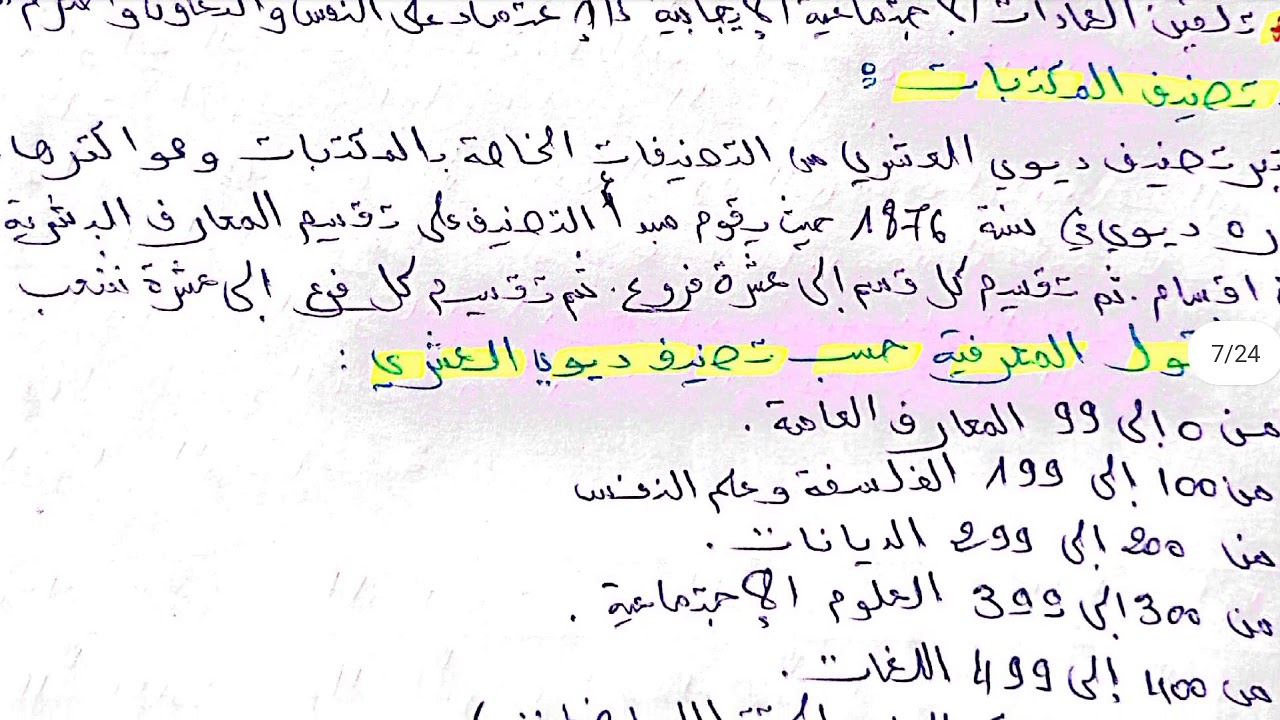 تلقين العادات الاجتماعية الإيجابية كالإعتماد على النفس والتعاون و
تصنيف المكتبات :
تبر تصنيف ديوي العشري من التصنيفات الخاصة بالمكتبات وهو اكثرها
ره ديوي في سنة 1876 حيث يقوم مبدأ التصنيف على تقسيم المعارف البشرية
اقسام . ثم تقسيم كل قسم إلى عشرة فروع . ثم تقسيم كل فرع إلى عشرة شعب
قول المعرفية حسب تصنيف ديوي العشري :
7/24
من 0 إلى 99 المعارف العامة .
من 100 إلى 199 الفلسفة وعلم النفس
من 200 إلى 299 الديانات .
من 300 إلى 399 العلوم الإجتماعية .
من 400 إلى 499 اللغات .